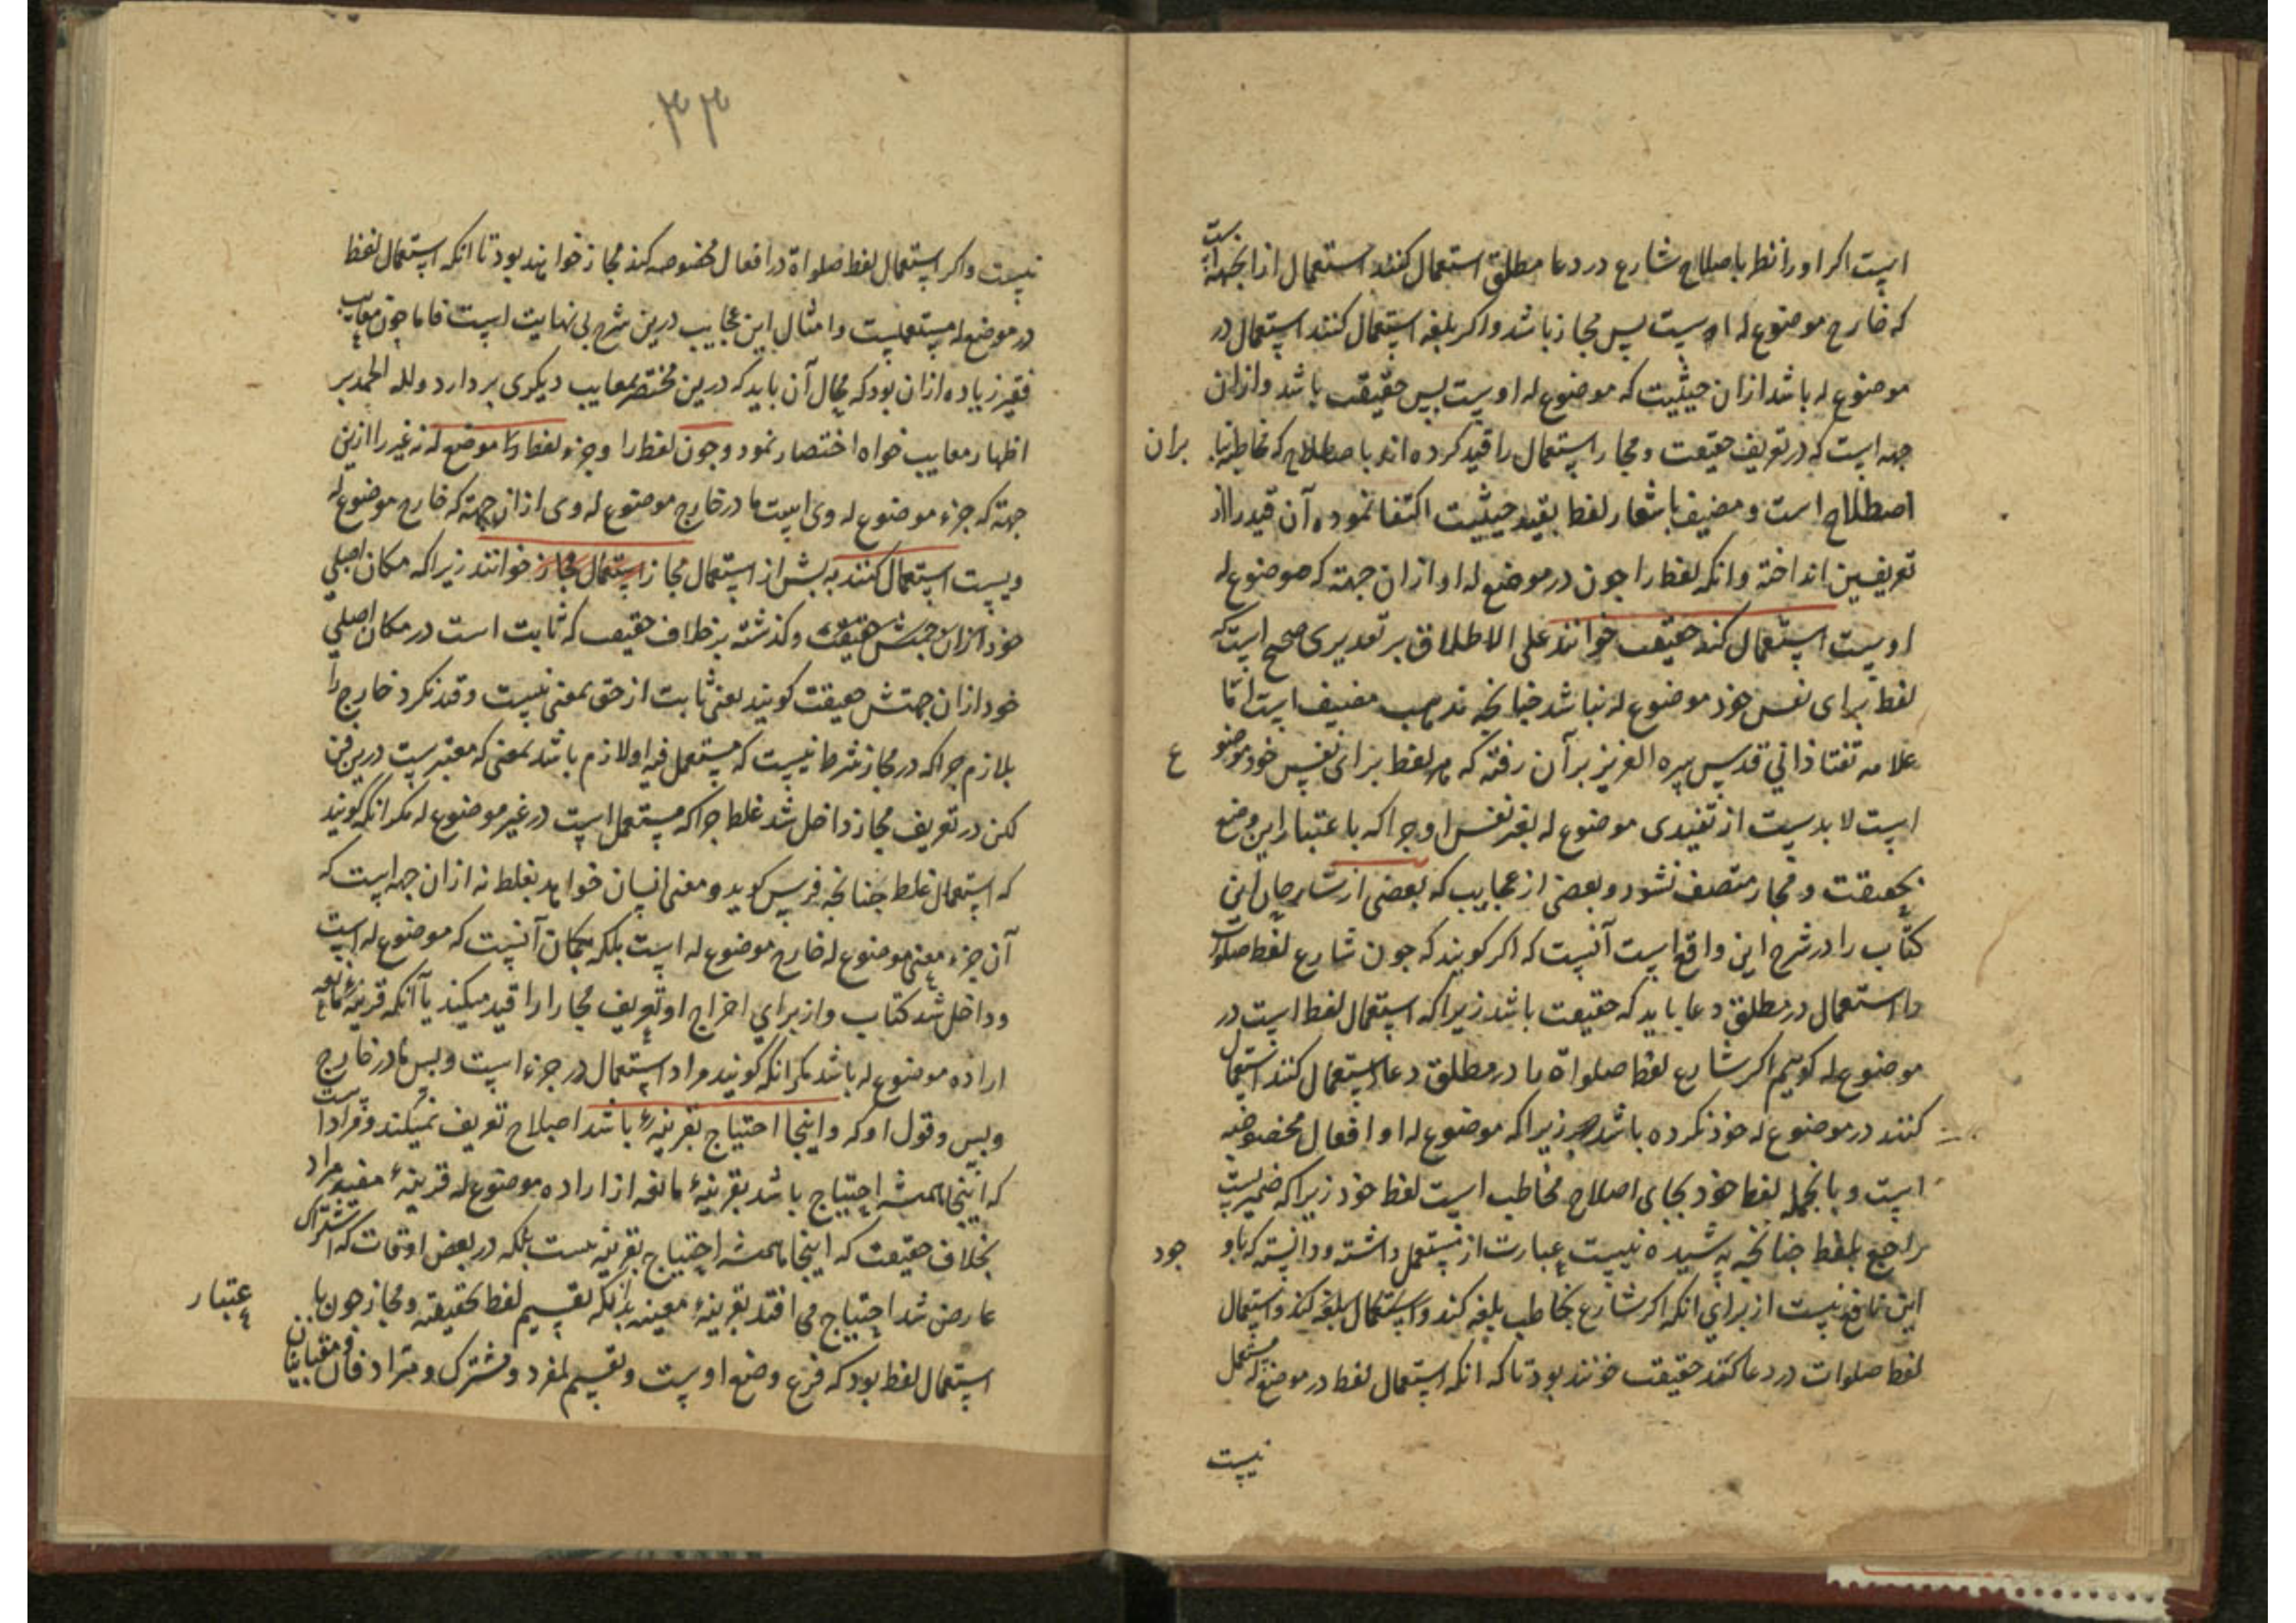 است اکر او را نظر باصطلاح شارع در دعا مطلق استعمال کنند استعمال از آنجهة است
که خارج موضوع له اوست پس مجاز باشد و اکر بلغه استعمال کنند استعمال در
موضوع له باشد ازان حیثیت که موضوع له اوست پس حقیقت باشد و ازان
جهه است که در تعریف حقیقت و مجاز استعمال را قید کرده اند باصطلاح که تخاطب بنا بران
اصطلاح است و مصنف باشعار لفظ بقید حیثیت اکتفا نموده آن قید را از
تعریفین انداخته وانکه لفظ را جون در موضع له او ازان جهة که موضوع له
اوست استعمال کند حقیقت خوانند علی الاطلاق بر تقدیری صحیح است که
لفظ برای نفس خود موضوع له نباشد جنانجه مذهب مصنف است اما
علامه تفتازانی قدس سره العزیز بر آن رفته که هر لفظ برای نفس خود موضوع
است لابدست از تقیدی موضوع له بغیر نفس او جراکه باعتبار این وضع
بحقیقت و مجاز متصف نشود و بعضی از عجایب که بعضی از شارحان این
کتاب را در شرح این واقع است آنست که اکر کویند که جون شارع لفظ صلوات
را استعمال در مطلق دعا باید که حقیقت باشد زیراکه استعمال لفظ است در
موضوع له کویم اکر شارع لفظ صلواة را در مطلق دعا استعمال کنند استعمال
کنند در موضوع له خود نکرده باشد زیراکه موضوع له او افعال مخصوصه
است و بالجمله لفظ خود بجای اصلاح مخاطب است لفظ خود زیراکه ضمیریست
راجع بلفظ جنانجه پوشیده نیست عبارت از مستعمل داشته و دانسته که باوجود
این نافع نیست از برای انکه اکر شارع بخاطب بلغه کند و استعمال بلغه کند و استعمال
لفظ صلوات در دعا کند حقیقت خوانند بود تا که انکه استعمال لفظ در موضع له مستعمل
نیست
٣٣
نیست و اکر استعمال لفظ صلواة در افعال مخصوصه کند مجاز خوانند بود تا انکه استعمال لفظ
در موضع له مستعملست و امثال این عجایب درین شرح بی نهایت است فاما جون معایب
فقیر زیاده ازان بود که مجال آن باید که درین مختصر معایب دیکری بردارد ولله الحمد بر
اظهار معایب خواه اختصار نمود وجون لفظ را و جزء لفظ را موضع له نه غیر را ازین
جهة که جزء موضوع له وی است یا در خارج موضوع له وی از ان جهة که خارج موضوع له
ویست استعمال کنند به بش از استعمال مجاز استعمال مجاز خوانند زیراکه مکان اصلی
خود ازان جهتش حقیقت و کذشته بر خلاف حقیقت که ثابت است در مکان اصلی
خود ازان جهتش حقیقت کویند یعنی ثابت از حق بمعنی نیست و قید نکرد خارج را
بلازم جراکه در مجاز شرط نیست که مستعمل فیه او لازم باشد بمعنی که معتبرست درین فن
لکن در تعریف مجاز داخل شد غلط جراکه مستعمل است در غیر موضوع له مکر انکه کویند
که استعمال غلط جنانجه فرس کوید و معنی انسان خواهد بغلط نه ازان جهه است که
آن جزء معنی موضوع له خارج موضوع له است بلکه بمکان آنست که موضوع له است
و داخل شد کتاب و از برای اخراج او تعریف مجاز را قید میکند یا آنکه قرینهٔ مانعه
اراده موضوع له باشد مکر انکه کویند مراد استعمال در جزء است و بس یا در خارج
و بس و قول او که و اینجا احتیاج بقرینهٔ باشد اصلاح تعریف نمیکند و مراد است
که اینجا همیشه احتیاج باشد بقرینهٔ مانعه از اراده موضوع له قرینهٔ مفید مراد
بخلاف حقیقت که اینجا همیشه احتیاج بقرینه نیست بلکه در بعض اوقات که اشتراک
عارض شد احتیاج می افتد بقرینهٔ معینه بدانکه تقسیم لفظ بحقیقة و مجاز جون باعتبار
استعمال لفظ بود که فرع وضع اوست و تقسیم بمفرد و مشترک و مترادفان و متباینان